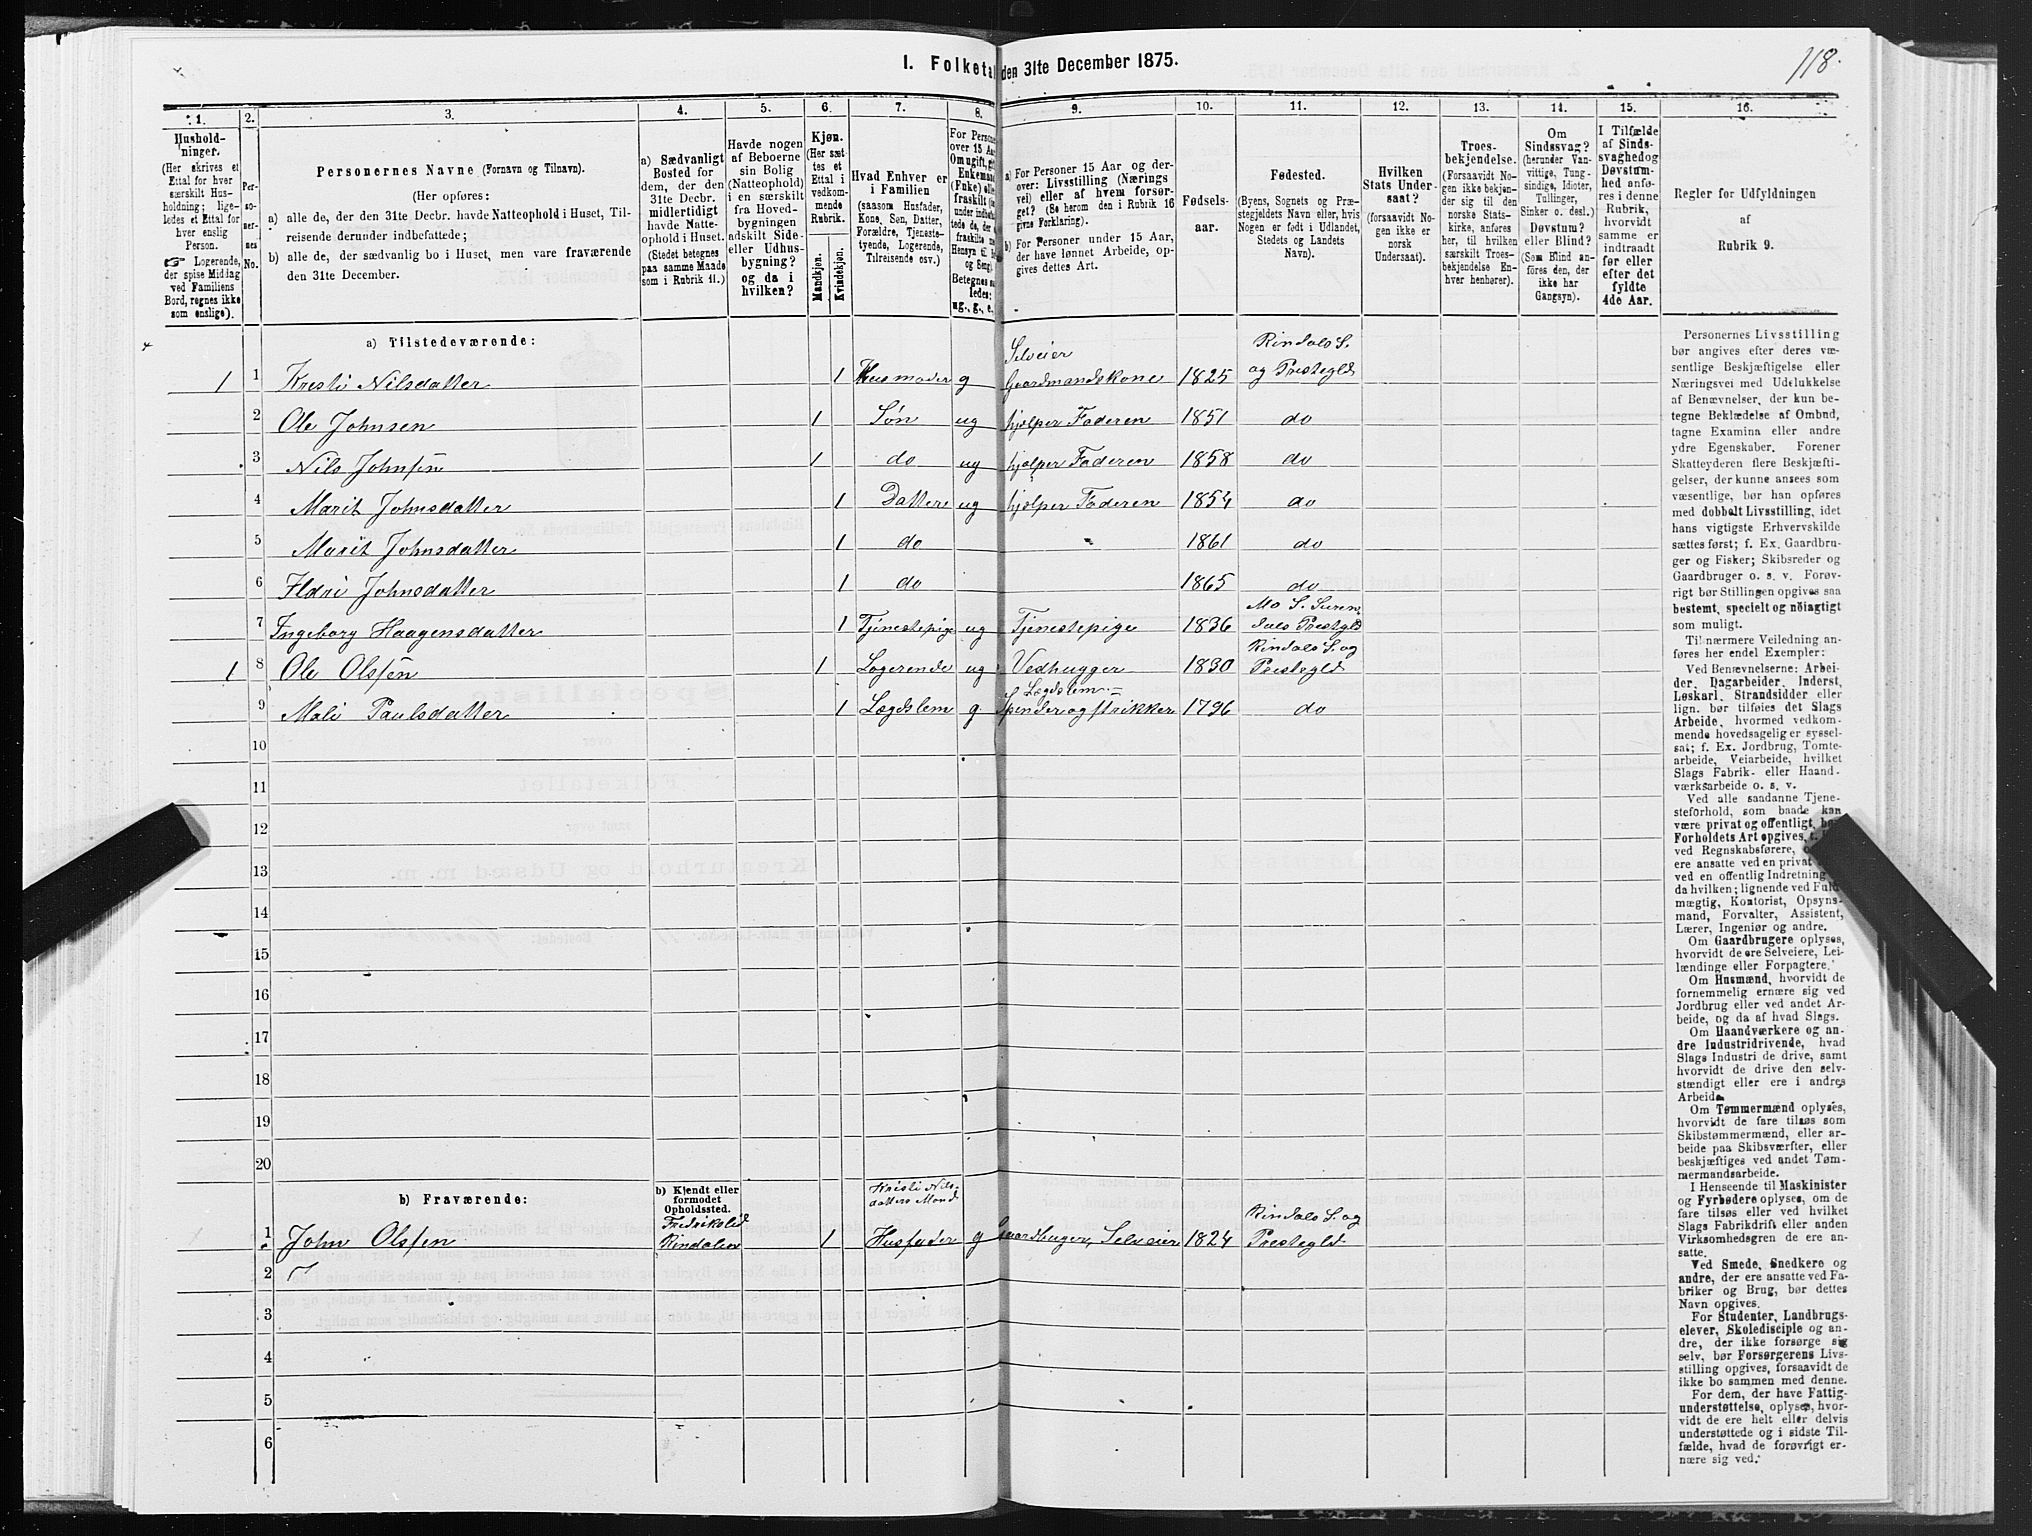 118.
I. Folketal den 31te December 1875.
1.
2.
3.
4.
5.
6.
7.
8.
9.
10.
11.
12.
13.
14.
15.
16.
Hushold-
ninger.
(Her skrives et
Ettal for hver
særskilt Hus-
holdning; lige-
ledes et Ettal for
hver enslig
Person.
☞ Logerende,
der spise Middag
ved Familiens
Bord, regnes ikke
som enslige).
Per-
so-
ner-
nes
No.
Personernes Navne (Fornavn og Tilnavn).
(Her opføres:
a) alle de, der den 31te Decbr. havde Natteophold i Huset, Til-
reisende derunder indbefattede;
b) alle de, der sædvanlig bo i Huset, men vare fraværende
den 31te December.
a) Sædvanligt
Bosted for
dem, der den
31te Decbr.
midlertidigt
havde Natte-
ophold i Huset.
(Stedet betegnes
paa samme Maade
som i Rubrik 11.)
Havde nogen
af Beboerne
sin Bolig
(Natteophold)
i en særskilt
fra Hoved-
bygningen
adskilt Side-
eller Udhus-
bygning?
og da i
hvilken?
Kjøn.
(Her sæt-
tes et
Ettal i
vedkom-
mende
Rubrik.
Mandkjøn.
Kvindekjøn.
Hvad Enhver er
i Familien
(saasom Husfader,
Kone, Søn, Datter,
Forældre, Tjeneste-
tyende, Logerende,
Tilreisende osv.)
For Persone
over 15 Aar
Om ugift, gift
Enkemand
(Enke) eller
fraskilt
Betegnes saa
ledes:
ug., g., e.,
a) For Personer 15 Aar og der-
over: Livsstilling (Nærings
vei) eller af hvem forsør-
get? (Se herom den i Rubrik 16
givne Forklaring).
b) For Personer under 15 Aar,
der have lønnet Arbeide, op-
gives dettes Art.
Fødsels-
aar.
Fødested.
(Byens, Sognets og Præ-
stegjeldets Navn eller, hvis
Nogen er født i Udlandet,
Stedets og Landets
Navn).
Hvilken
Stats Under-
saat?
(forsaavidt No-
gen ikke er
norsk
Undersaat).
Troes-
bekjendelse.
(Forsaavidt No-
gen ikke bekjen-
der sig til den
norske Stats-
kirke, anføres
her, til hvilken
særskilt Troes-
bekjendelse En-
hver henhører).
Om
Sindssvag?
(herunder Van-
vittige, Tung-
sindige, Idioter,
Tullinger,
Sinker o. desl.)
Døvstum?
eller Blind?
(Som Blind an-
føres den, der
ikke har
Gangsyn).
I Tilfælde
af Sinds-
svaghed og
Døvstum-
hed anfø-
res i denne
Rubrik,
hvorvidt
samme er
indtraadt
før eller
efter det
fyldte
4de Aar.
Regler for Udfyldningen
af
Rubrik 9.
a) Tilstedeværende:
1 1 Kristi Nilsdatter 1 Husmoder g Selveier Gaardmandskone 1825 Rindals S. og Prestegld
2 Ole Johnsen 1 Søn ug hjelper Faderen 1851 do
3 Nils Johnsen 1 do ug hjelper Faderen 1858 do
4 Marit Johnsdatter 1 Datter ug hjelper Faderen 1854 do
5 Marit Johnsdatter 1 do 1861 do
6 Ildri Johnsdatter 1 do 1865 do
7 Ingeborg Haagensdatter 1 Tjenestepige ug Tjenestepige 1836 Mo S. Suren- dals Prestgld
1 8 Ole Olsen 1 Logerende ug Vedhugger 1830 Rindals S. og Prestegld
9 Mali Paulsdatter 1 Lægdslem g Lægdslem - Spinder og strikker 1796 do
10
11
12
13
14
15
16
17
18
19
20
b) Fraværende:
b) Kjendt eller
formodet
Opholdssted.
1 John Olsen Rindalen 1 Kristi Nils- datters Mand Husfader g Gaardbruger, Selveier 1824 Rindals S. og Prestegld
2
3
4
5
6
Personernes Livsstilling
bør angives efter deres væ-
sentlige Beskjæftigelse eller
Næringsvei med Udelukkelse
af Benævnelser, der kun be-
tegne Beklædelse af Ombud,
tagne Examina eller andre
ydre Egenskaber. Forener
Skatteyderen flere Beskjæfti-
gelser, der kunne ansees som
væsentlige, bør han opføres
med dobbelt Livsstilling, idet
hans vigtigste Erhvervskilde
sættes først; f. Ex. Gaardbru-
ger og Fisker; Skibsreder og
Gaardbruger o. s. v. Forøv-
rigt bør Stillingen opgives saa
bestemt, specielt og nøiagtigt
som muligt.
Til nærmere Veiledning an-
føres her endel Exempler:
Ved Benævnelserne: Arbei-
der, Dagarbeider, Inderst,
Løskarl, Strandsidder eller
lign. bør tilføies det Slags
Arbeide, hvormed vedkom-
mende hovedsagelig er syssel-
sat; f. Ex. Jordbrug, Tomte-
arbeide, Veiarbeide, hvilket
Slags Fabrik- eller Haand-
værksarbeide o. s. v.
Ved alle saadanne Tjene-
steforhold, som baade kan
være privat og offentligt, bør
Forholdets Art opgives,
ved Regnskabsførere,
ere ansatte ved en privat
ved en offentlig Indretning
da hvilken; lignende ved Fuld-
mægtig, Kontorist, Opsyns-
mand, Forvalter, Assistent,
Lærer, Ingeniør og andre.
Om Gaardbrugere oplyses,
hvorvidt de ere Selveiere, Lei-
lændinge eller Forpagtere.
Om Husmænd, hvorvidt de
fornemmelig ernære sig ved
Jordbrug eller ved andet Ar-
beide, og da af hvad Slags.
Om Haandværkere og an-
dre Industridrivende, hvad
Slags Industri de drive, samt
hvorvidt de drive den selv-
stændigt eller ere i andres
Arbeide.
Om Tømmermænd oplyses,
hvorvidt de fare tilsøs som
Skibstømmermænd, eller ar-
beide paa Skibsværfter, eller
beskjæftiges ved andet Tøm-
mermandsarbeide.
I Henseende til Maskinister
og Fyrbødere oplyses, om de
fare tilsøs eller ved hvilket
Slags Fabrikdrift eller anden
Virksomhedsgren de ere an-
satte.
Ved Smede, Snedkere og
andre, der ere ansatte ved Fa-
briker og Brug, bør dettes
Navn opgives.
For Studenter, Landbrugs-
elever, Skoledisciple og an-
dre, der ikke forsørge sig
selv, bør Forsørgerens Livs-
stilling opgives, forsaavidt de
ikke bo sammen med denne.
For dem, der have Fattig-
understøttelse, oplyses, hvor-
vidt de ere helt eller delvis
understøttede og i sidste Til-
fælde, hvad de forøvrigt er-
nære sig ved.